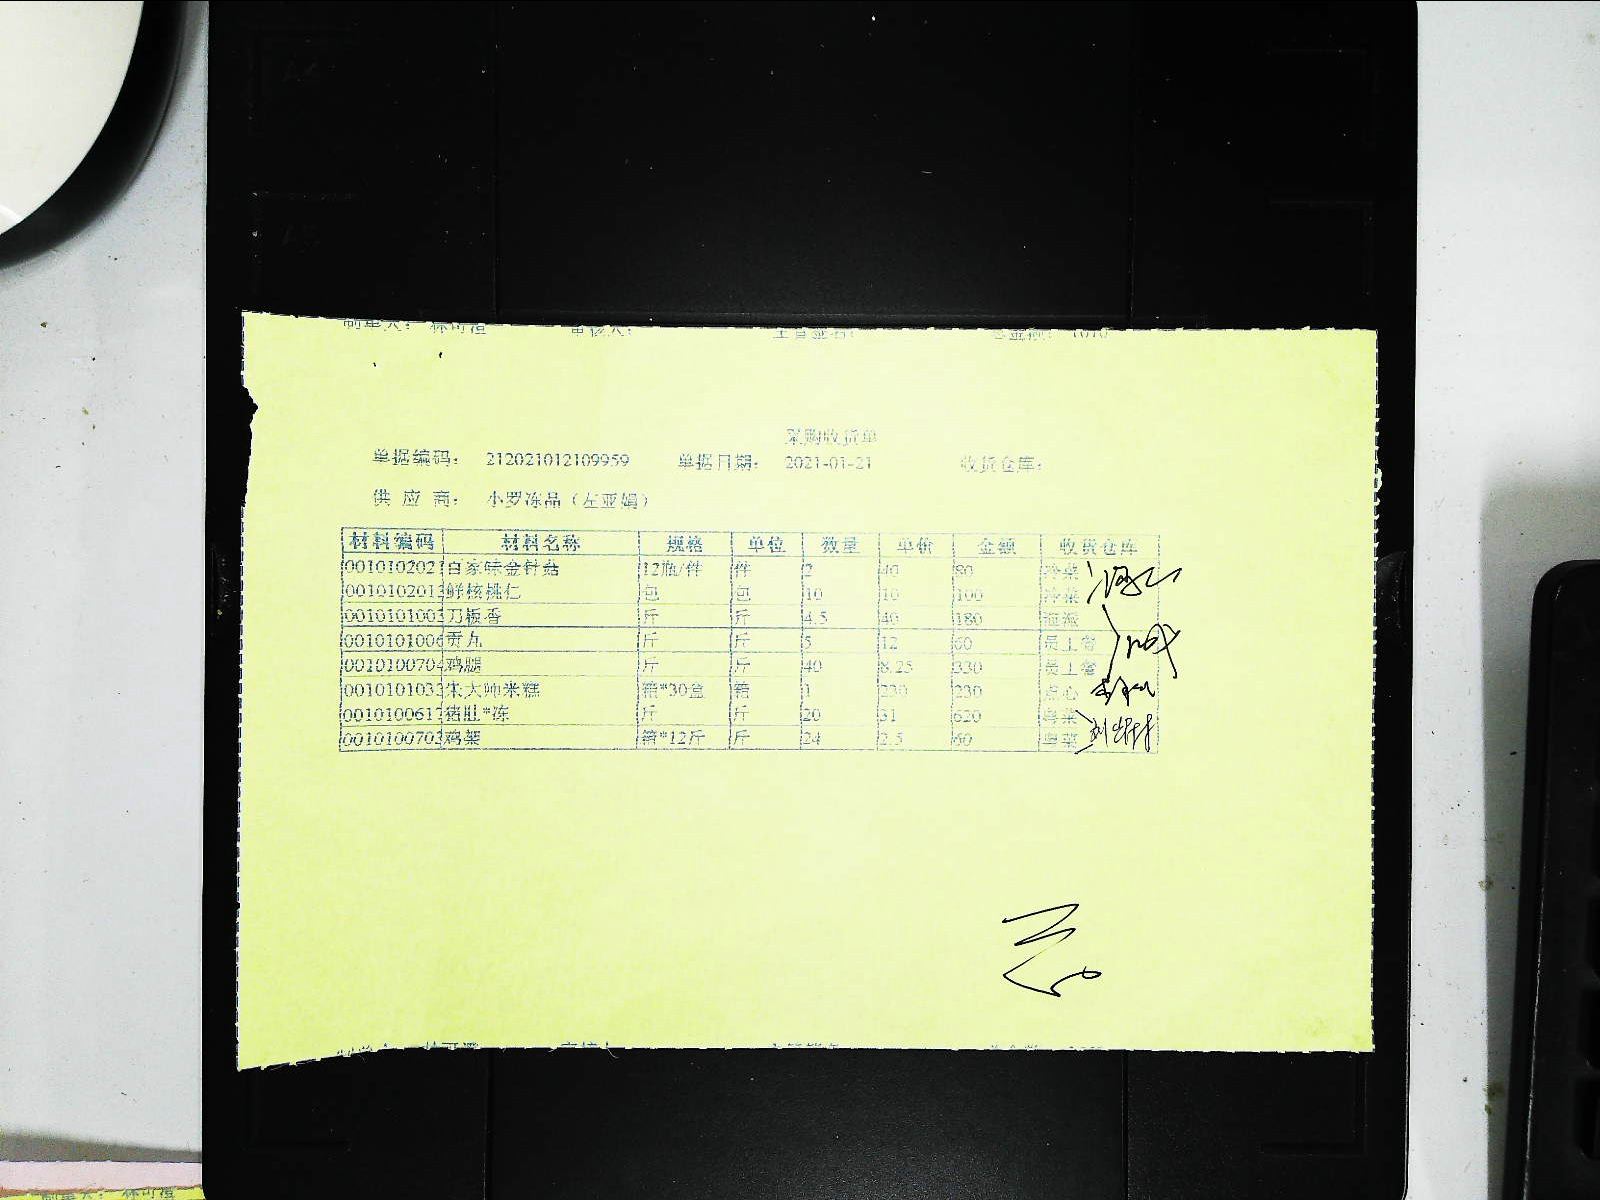 制单人： 林可滢 审核人： 主管签名： 总金额： 1010
采购收货单
单据编码： 212021012109959 单据日期： 2021-01-21 收货仓库：
供 应 商： 小罗冻品（左亚娟）
材料编码 材料名称 规格 单位 数量 单价 金额 收货仓库
0010102021 百家味金针菇 12瓶/件 件 2 40 80 冷菜
0010102013 鲜核桃仁 包 包 10 10 100 冷菜
0010101003 刀板香 斤 斤 4.5 40 180 海派
0010101006 贡丸 斤 斤 5 12 60 员工餐
0010100704 鸡腿 斤 斤 40 8.25 330 员工餐
0010101033 朱大帅米糕 箱*30盒 箱 1 230 230 点心
0010100617 猪肚*冻 斤 斤 20 31 620 粤菜
0010100702 鸡架 箱*12斤 斤 24 2.5 60 粤菜
制单人： 林可滢